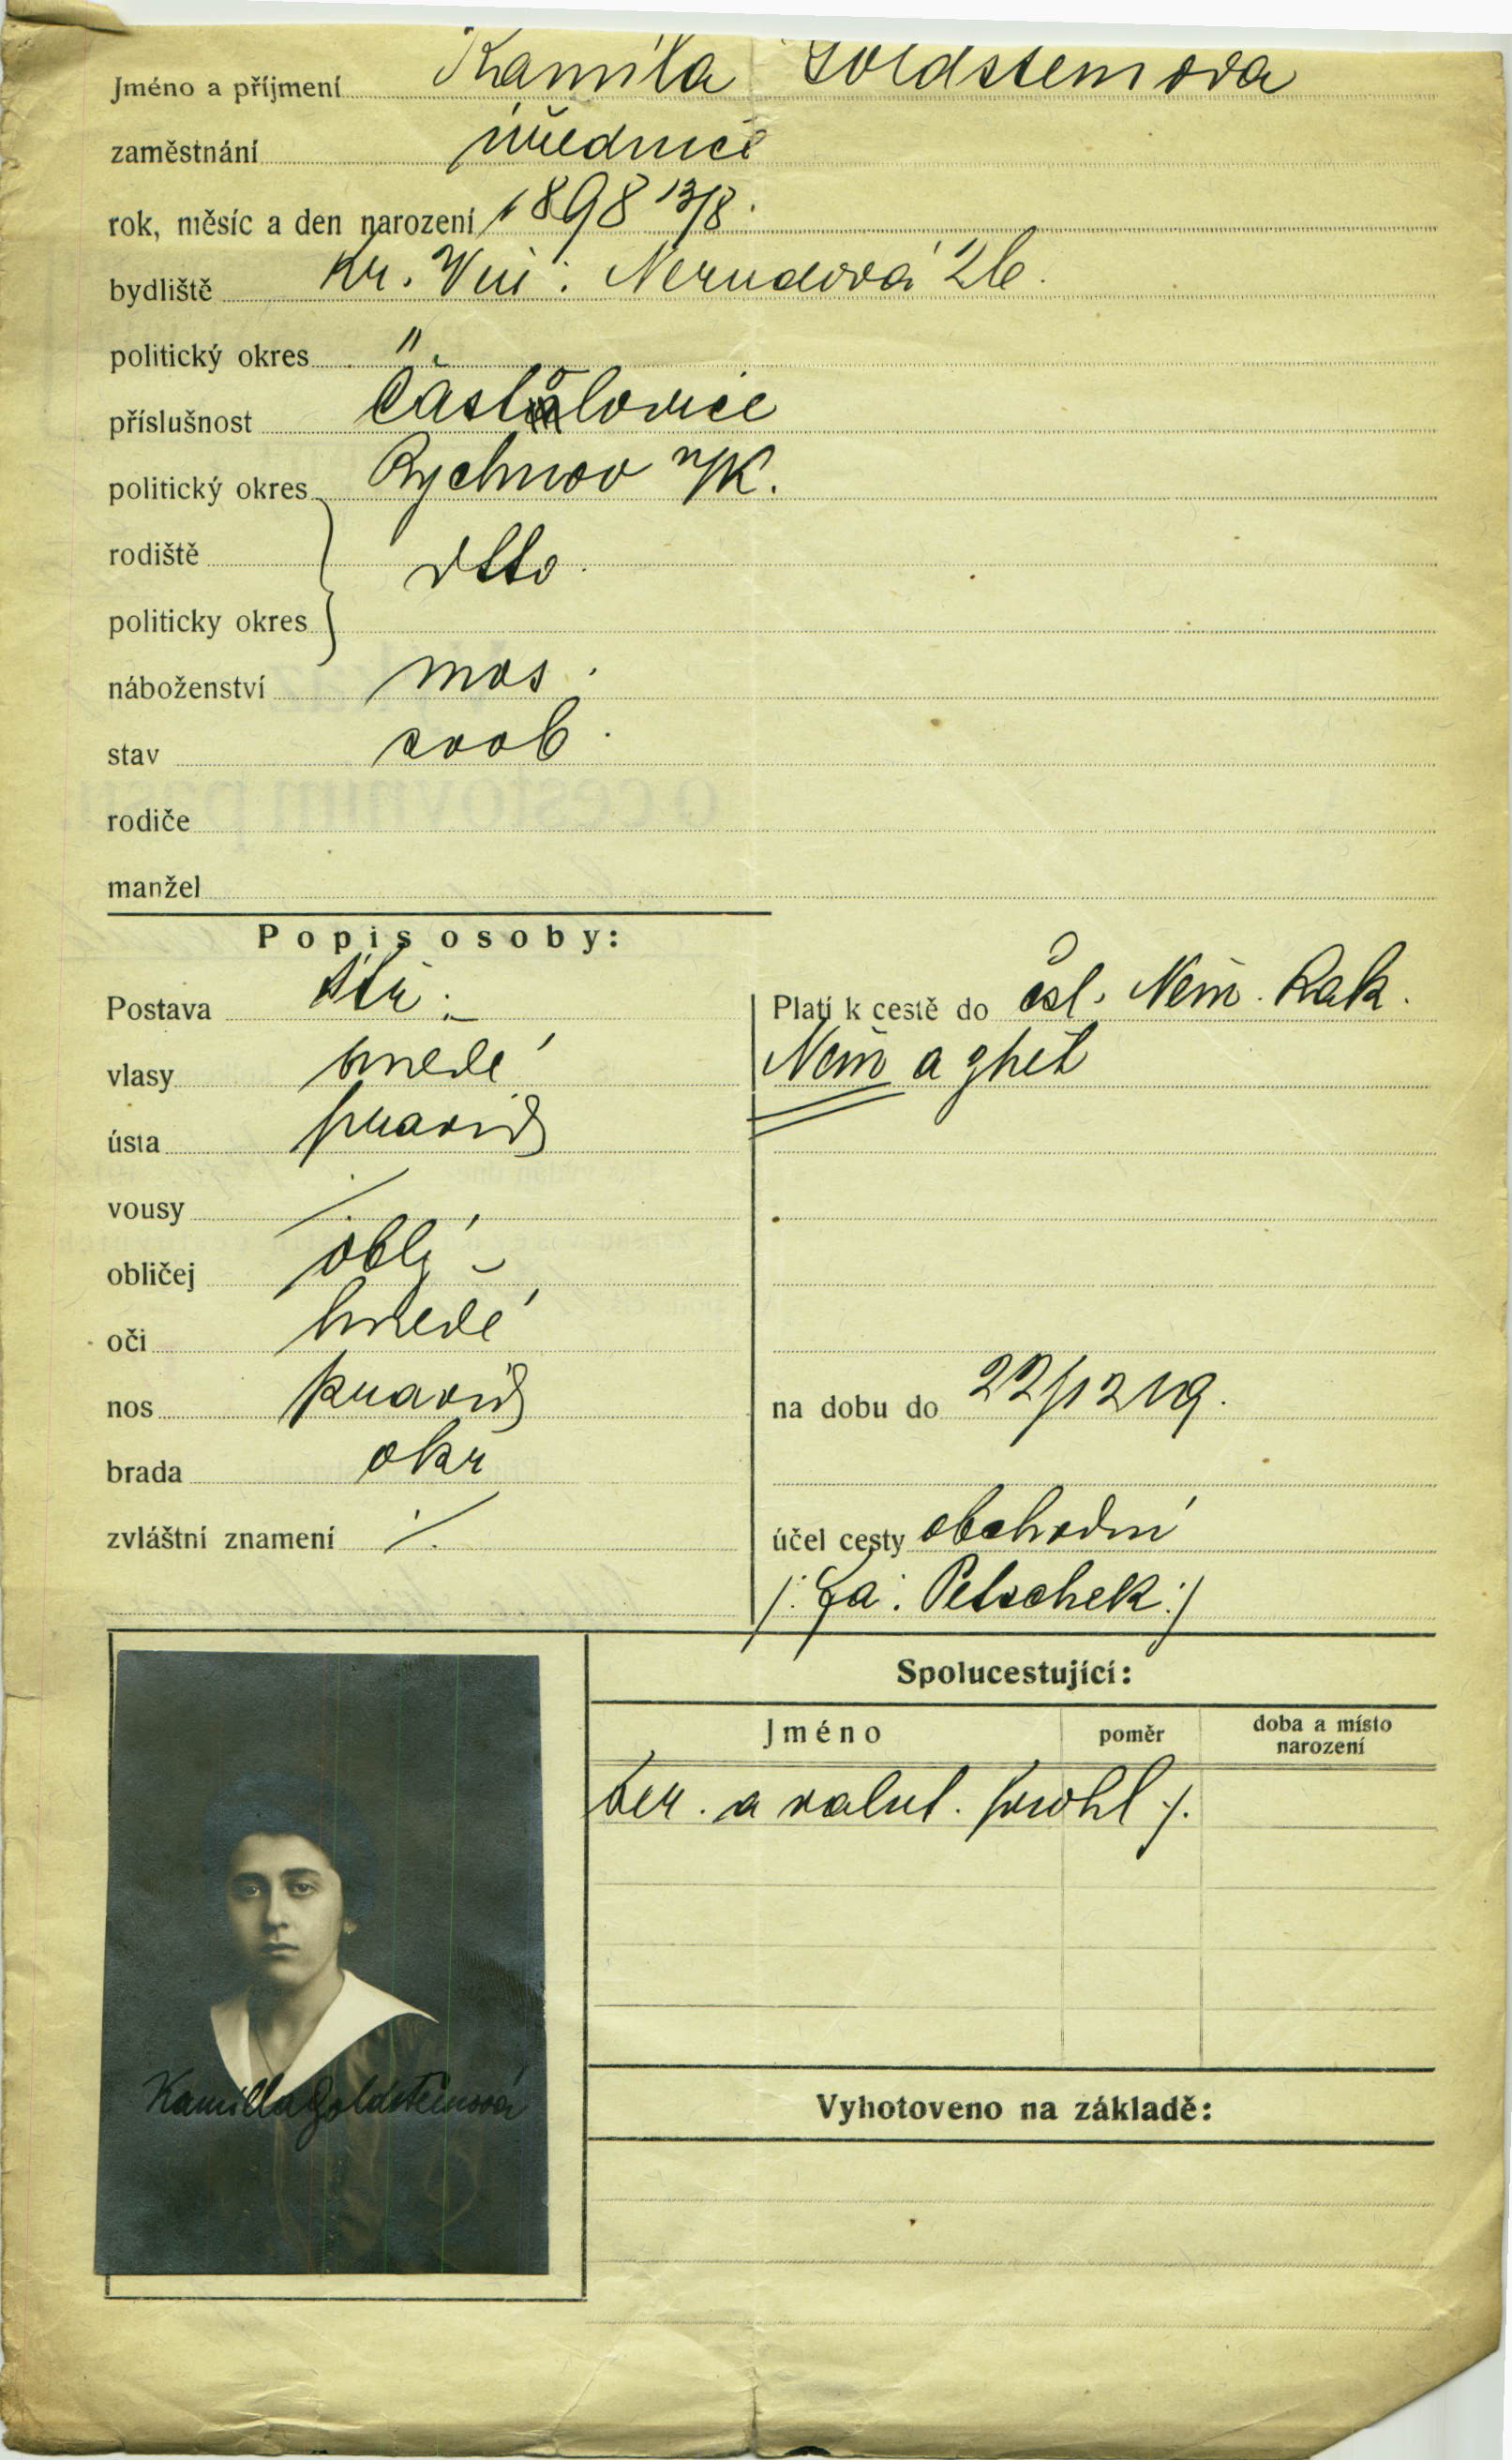 Jméno a příjmení Kamila Goldsteinova
zaměstnání úřednice
rok, měsíc a den narození 1898 13/8.
bydliště Kr. Vin: Nerudova 26.
politický okres "
příslušnost Častolovice
politický okres Rychnov n/K.
rodiště dtto.
politicky okres
náboženství mos.
stav svob.
rodiče
manžel
Popis osoby:
Postava stř.
vlasy hnědé
ústa pravid
vousy ⁒
obličej oblý
oči hnědé
nos pravid
brada okr
zvláštní znamení ⁒
Platí k cestě do čsl. Něm. Rak.
Něm a zpět
na dobu do 22/12 19.
účel cesty obchodní
/: fa: Petschek :/
Spolucestující:
Jméno poměr doba a místo narození
ber. a valut. prohl /.
Kamilla Goldsteinová
Vyhotoveno na základě: